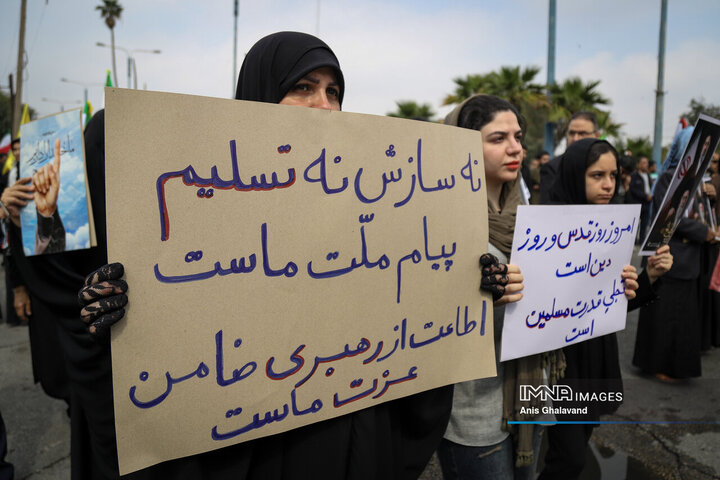 نه سازش نه تسلیم
پیام ملّت ماست
اطاعت از رهبری ضامن
عزت ماست
امروز روز قدس و روز
دین است
تجلی قدرت مسلمین
است
IMNA IMAGES
Anis Ghalavand